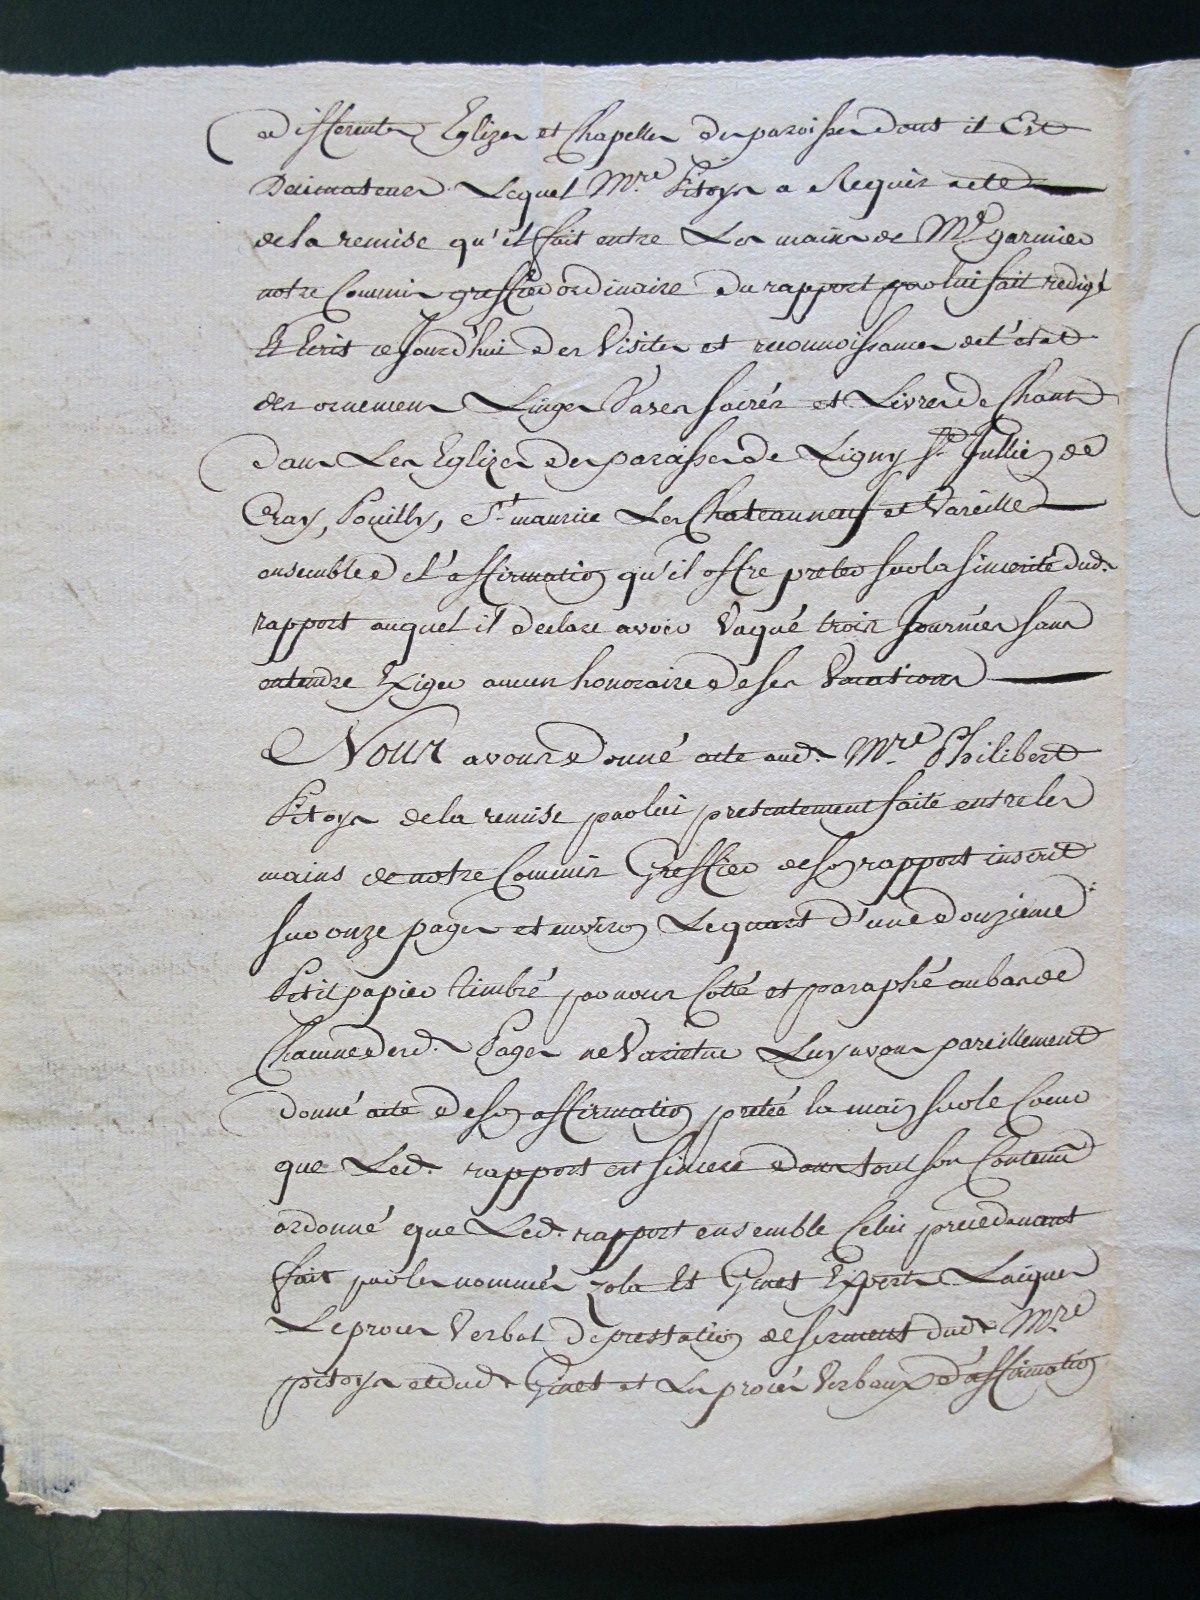 differentes Eglizes et Chapelles des paroisses dont il Est
Decimateur. Lequel Mre. Pitoys a Requis acte
de la remise qu'il fait entre Les mains de Mr. garnier
notre Commis greffier ordinaire du rapport par lui fait redigé
Et Ecrit ce Jourd'hui des Visites et reconnoissances de l'état
des ornemens Linges Vases sacrés et Livres de Chant
dans Les Eglizes des paroisses de Ligny St. Jullien de
Cray, Pouilly, St. maurice Les Chateauneuf et Vareilles
ensemble de l'affirmation qu'il offre preter sur la sincerité dud.
rapport auquel il declare avoir Vaqué trois Journées sans
entendre Exiger aucun honoraire de ses Vacations
Nous avons donné acte aud. Mre. Philibert
Pitoys de la remise par lui presentement faite entre les
mains de notre Commis Greffier de son rapport inscrit
sur onze pages et environ Le quart d'une douzieme
Petit papier timbré par nous Cotté et paraphé au bas de
Chacune desd. Pages ne Varietur Luy avons pareillement
donné acte de son affirmation pretée la main sur le Coeur
que Led. rapport est sincere dans tout son Contenu
ordonné que Led. rapport ensemble Celui precedament
fait par les nommés Zola Et Ginet Experts Laiques
Le procès Verbal de prestation de serment dud. Mre.
pitoys et dud. Ginet et Les procès Verbaux d'affirmation